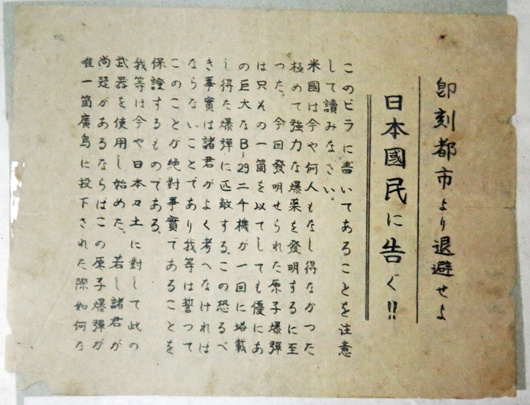 即刻都市より退避せよ
日本國民に告ぐ!!
このビラに書いてあることを注意
して讀みなさい。
米國は今や何人もなし得なかつた
極めて強力な爆薬を發明するに至
つた。今回發明せられた原子爆弾
は只その一箇を以てしても優にあ
の巨大なB-29二千機が一回に搭載
し得た爆弾に匹敵する。この恐るべ
き事實は諸君がよく考へなければ
ならないことであり我等は誓つて
このことが絶對事實であることを
保證するものである。
我等は今や日本々土に対して此の
武器を使用し始めた。若し諸君が
尚疑があるならばこの原子爆弾が
唯一箇廣島に投下された際如何な